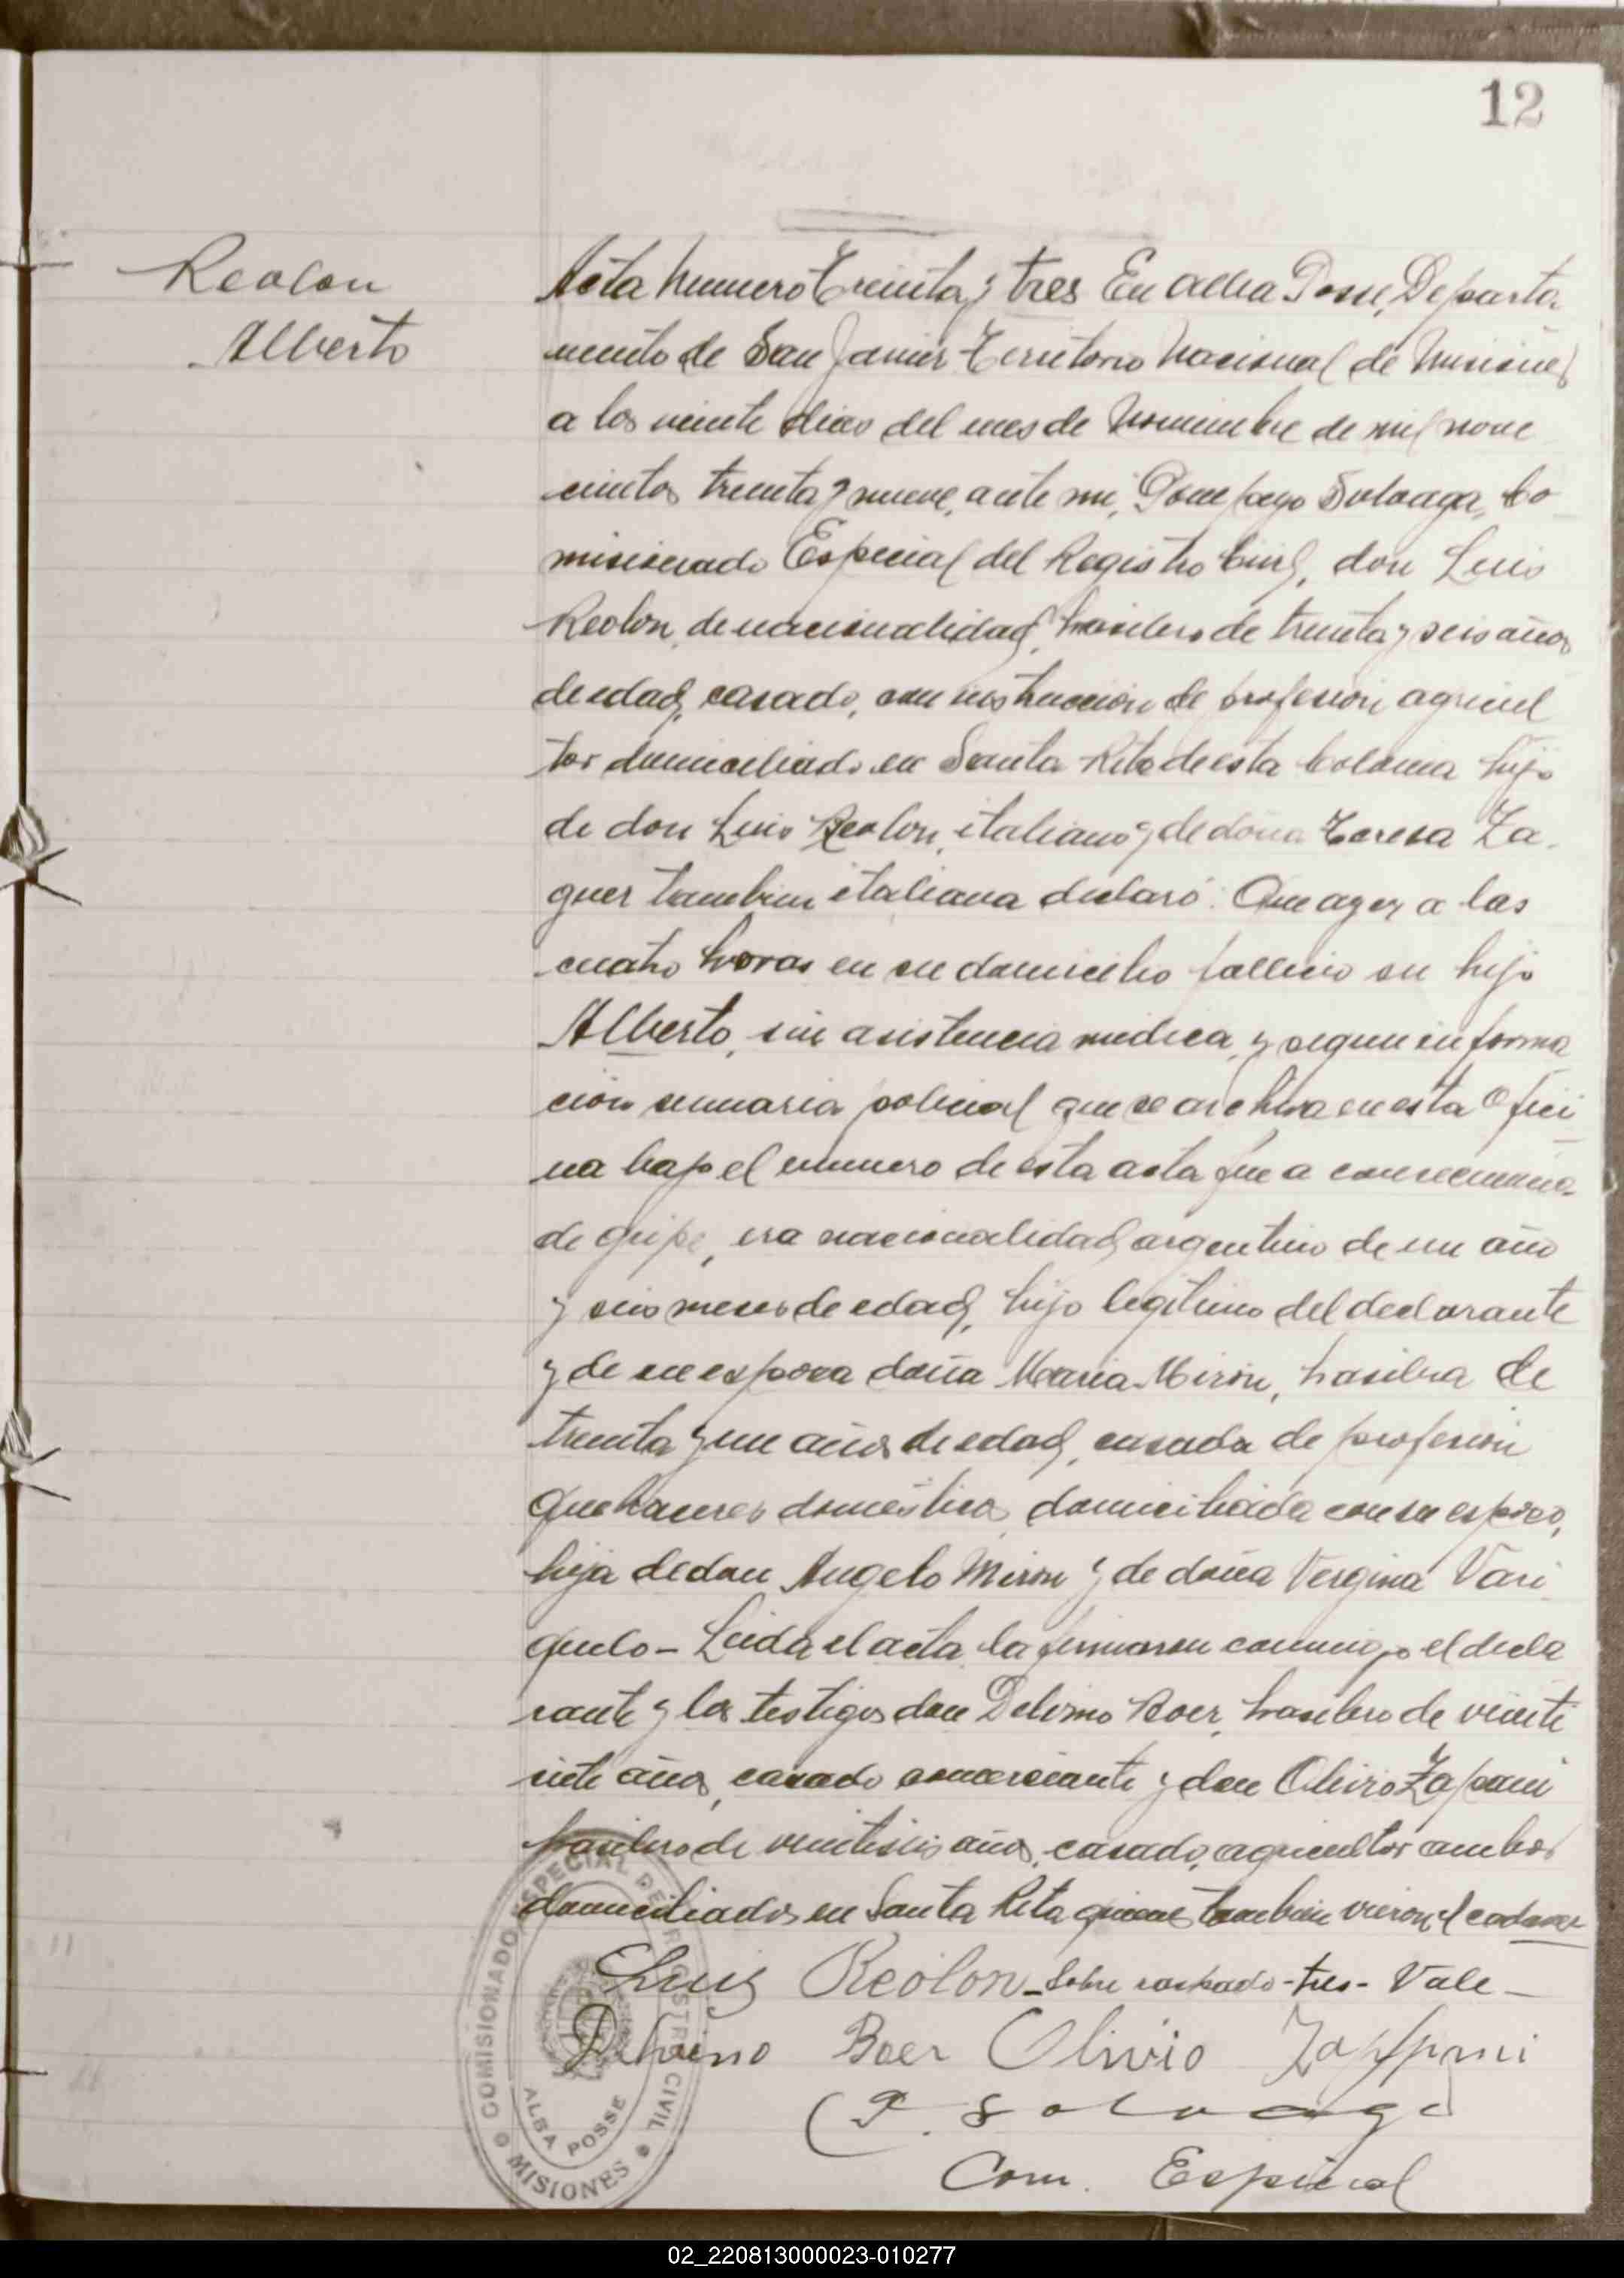 12
Reolon
Alberto
Acta Numero Treinta y tres En Alba Posse, Departa
mento de San Javier Territorio Nacional de Misiones
a los veinte dias del mes de Noviembre de mil nove
cientos treinta y nueve, ante mi, Pompeyo Solvaga, Co
misionado Especial del Registro Civil, don Luis
Reolon, de nacionalidad, brasilero de treinta y seis años
de edad, casado, con instruccion de profesion agricul
tor domiciliado en Santa Rita de esta Colonia hijo
de don Luis Reolon, italiano y de doña Teresa Za
guer tambien italiana declaró: Que ayer a las
cuatro horas en su domicilio fallecio su hijo
Alberto, sin asistencia medica, y segun informa
cion sumaria policial que se archiva en esta Ofici
na bajo el numero de esta acta fue a consecuencia
de gripe, era nacionalidad argentino de un año
y seis meses de edad, hijo legitimo del declarante
y de su esposa doña Maria Miron, brasilera de
treinta y un años de edad, casada de profesion
quehaceres domésticos domiciliada con su esposo,
hija de don Angelo Miron y de doña Vergina Vari
quelo - Leida el acta la firmaron conmigo el decla
rante y los testigos don Delvino Boer, brasilero de veinti
siete años, casado comerciante y don Olivio Zappani
brasilero de veintiseis años, casado, agricultor ambos
domiciliados en Santa Rita quienes tambien vieron el cadaver
Luis Reolon - Sobre raspado - tres - Vale -
Delvino Boer Olivio Zappani
P. Solvaga
Com. Especial
COMISIONADO ESPECIAL DEL REGISTRO CIVIL
ALBA POSSE
MISIONES
02_220813000023-010277